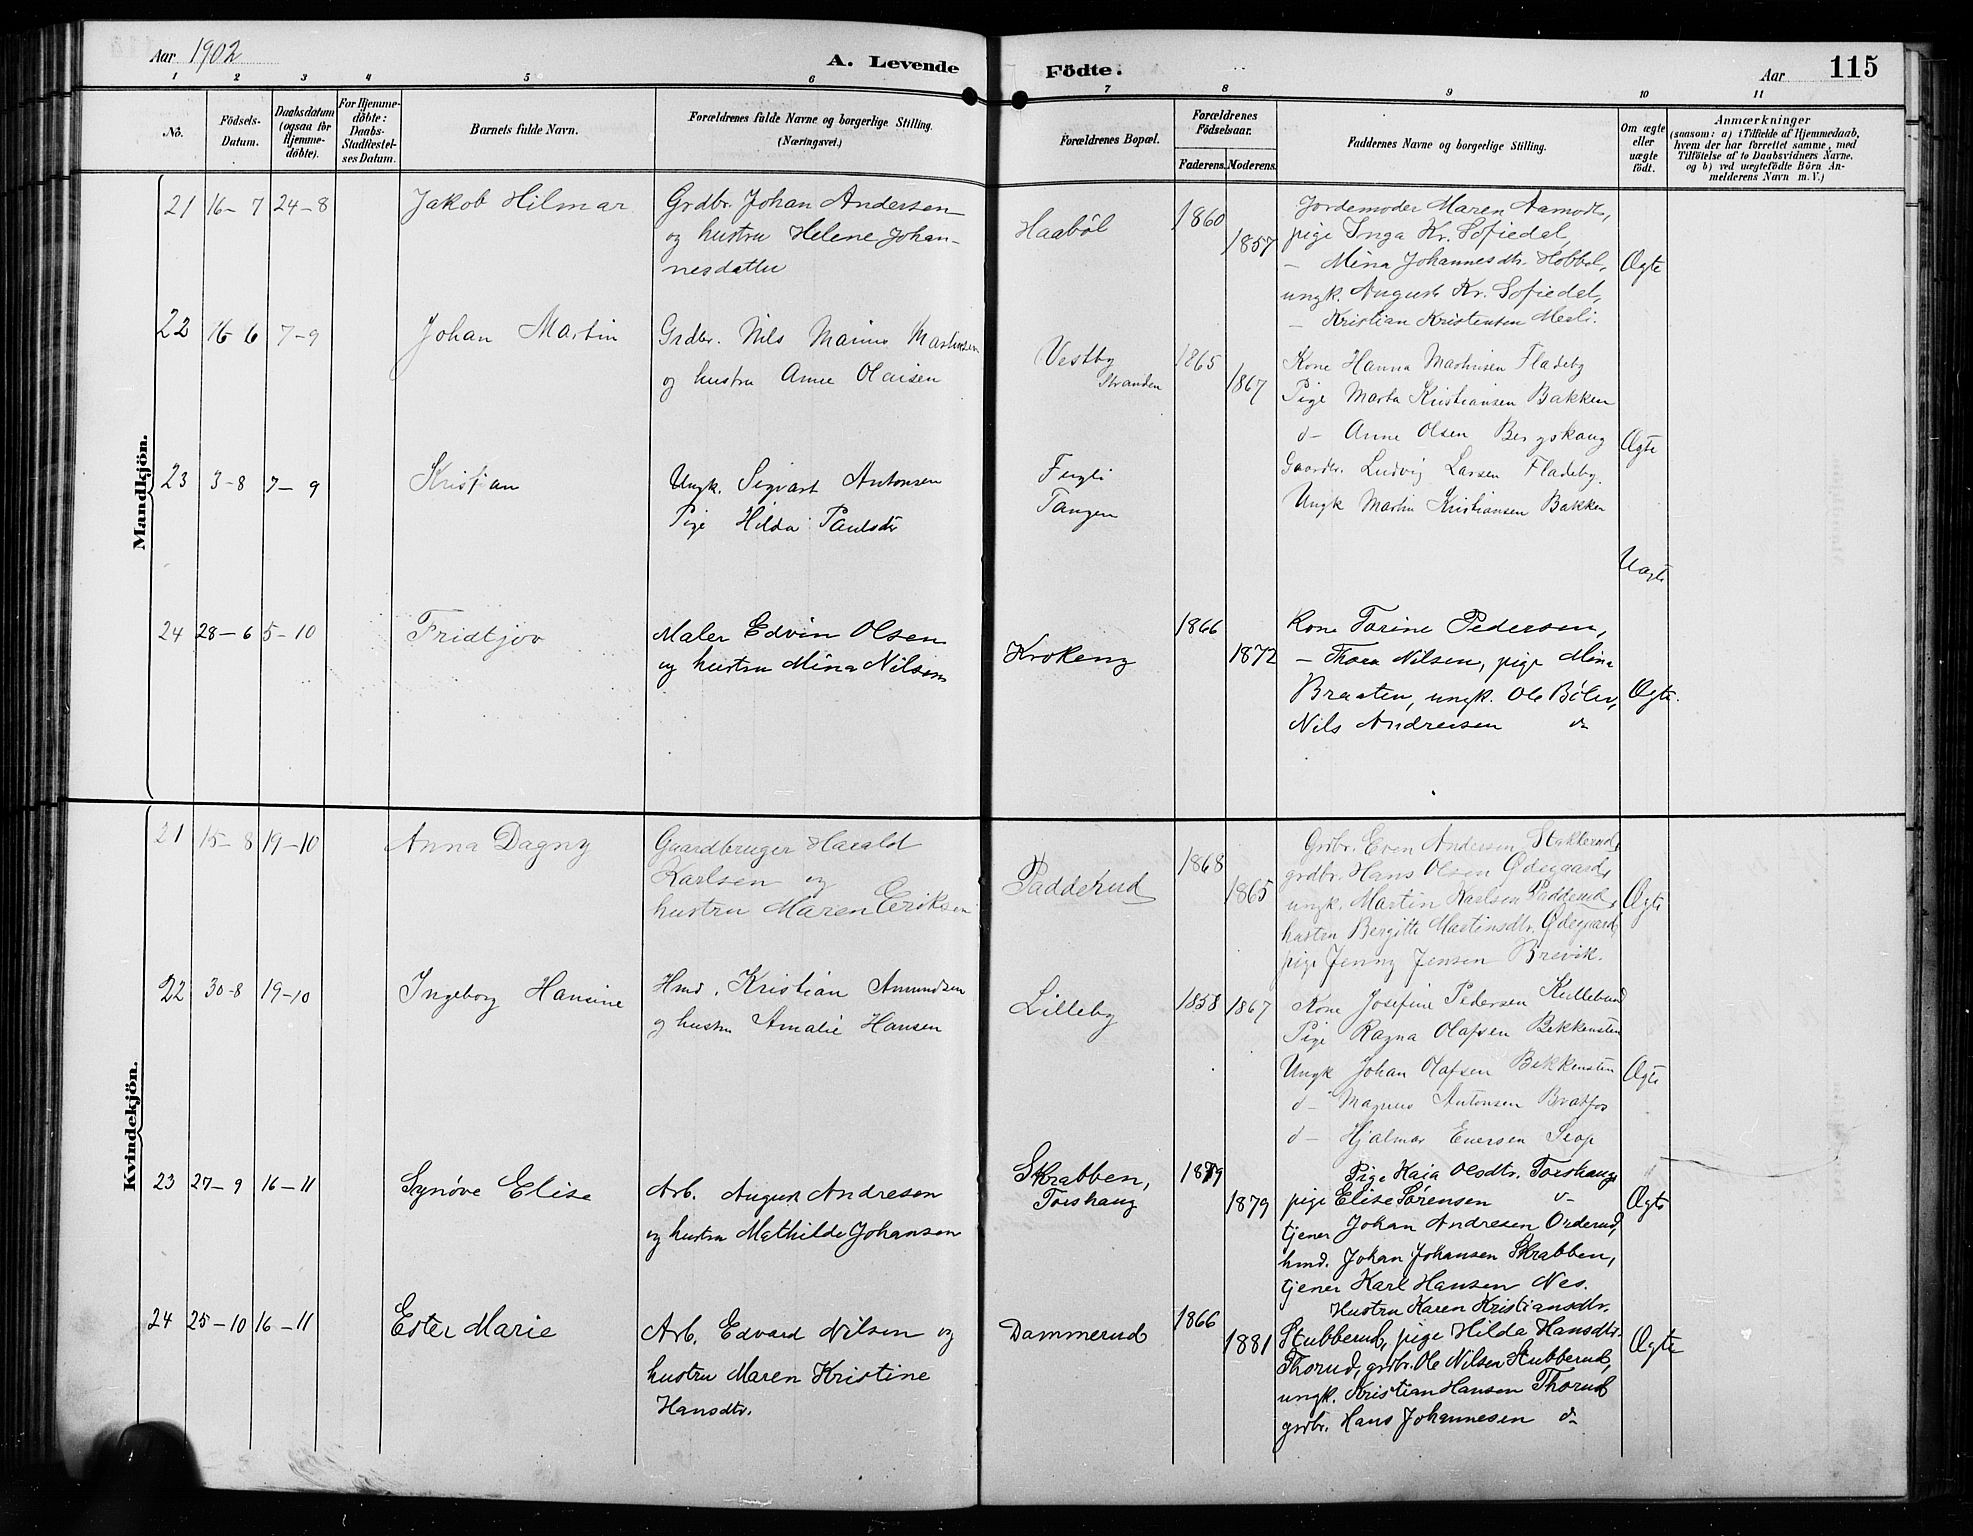 Aar 1902
A. Levende Födte.
Aar 115
1 2 3 4 5 6 7 8 9 10 11
No.
Födsels-Datum.
Daabsdatum (ogsaa för Hjemme-döbte).
For Hjemme-döbte: Daabs-Stadfæstel-ses Datum.
Barnets fulde Navn.
Forældrenes fulde Navne og borgerlige Stilling. (Næringsvei.)
Forældrenes Bopæl.
Forældrenes Födselsaar.
Faderens. Moderens.
Faddernes Navne og borgerlige Stilling.
Om ægte eller uægte födt.
Anmærkninger
(saasom: a) i Tilfælde af Hjemmedaab,
hvem der har forrettet samme, med
Tilföielse af to Daabsvidners Navne.
og b) ved uægtefödte Börn An-
melderens Navn m. V.)
Mandkjön.
21 16-7 24-8 Jakob Hilmar
Grdbr. Johan Andersen
og hustru Helene Johan-
nesdatter
Haabøl 1860 1857
Jordemoder Maren Aamodt,
pige Inga Kr. Sofiedal,
- Mina Johannesdtr. Hobbøl,
ungk. August Kr. Sofiedal,
- Kristian Kristensen Mesli.
Ægte
22 16-6 7-9 Johan Martin
Grdbr. Nils Marius Martinsen
og hustru Anne Olaisen
Vestby
Stranden
1865 1867
Kone Hanna Martinsen Fladeby
Pige Marta Kristiansen Bakken
d- Anne Olsen Bergskaug
Gaardbr. Ludvig Larsen Fladeby.
Ungk Martin Kristiansen Bakken
Ægte
23 3-8 7-9 Kristian
Ungk. Sigvart Antonsen
Pige Hilda Paulsdtr
Fugli
Tangen
Uægte
24 28-6 5-10 Fridtjov
Maler Edvin Olsen
og hustru Mina Nilsen
Krokeng 1866 1872
Kone Torine Pedersen,
- Thora Nilsen, pige Mina
Braaten, ungk. Ole Bøler,
Nils Andreisen d-
Ægte.
Kvindekjön.
21 15-8 19-10 Anna Dagny
Gaardbruger Harald
Karlsen og
hustru Maren Eriksen
Padderud 1868 1865
Grdbr. Even Andersen Stakkerud,
grdbr. Hans Olsen Ødegaard,
ungk. Martin Karlsen Padderud,
hustru Bergitte Martinsdtr. Ødegaard,
pige Jenny Jensen Brevik.
Ægte
22 30-8 19-10 Ingeborg Hansine
Hmd. Kristian Amundsen
og hustru Amalie Hansen
Lilleby 1858 1867
Kone Josefine Pedersen Kullebund
Pige Ragna Olafsen Bekkensten
Ungk Johan Olafsen Bekkensten
d- Magnus Antonsen Bratfos
d- Hjalmar Evensen
Ægte
23 27-9 16-11 Synøve Elise
Arb. August Andresen
og hustru Mathilde Johansen
Skrabben,
Torshaug
1879 1879
Pige Kaia Olsdtr. Torshaug,
pige Elise Sørensen d-
tjener Johan Andresen Orderud,
hmd. Johan Johansen Skrabben,
tjener Karl Hansen Nes.
Ægte
24 25-10 16-11 Ester Marie
Arb. Edvard Nilsen og
hustru Maren Kristine
Hansdtr.
Dammerud 1866 1881
Hustru Karen Kristiansdtr.
Stubberud, pige Hilda Hansdtr.
Thorud, grdbr. Ole Nilsen Stubberud,
ungk. Kristian Hansen Thorud
grdbr. Hans Johannesen d-
Ægte